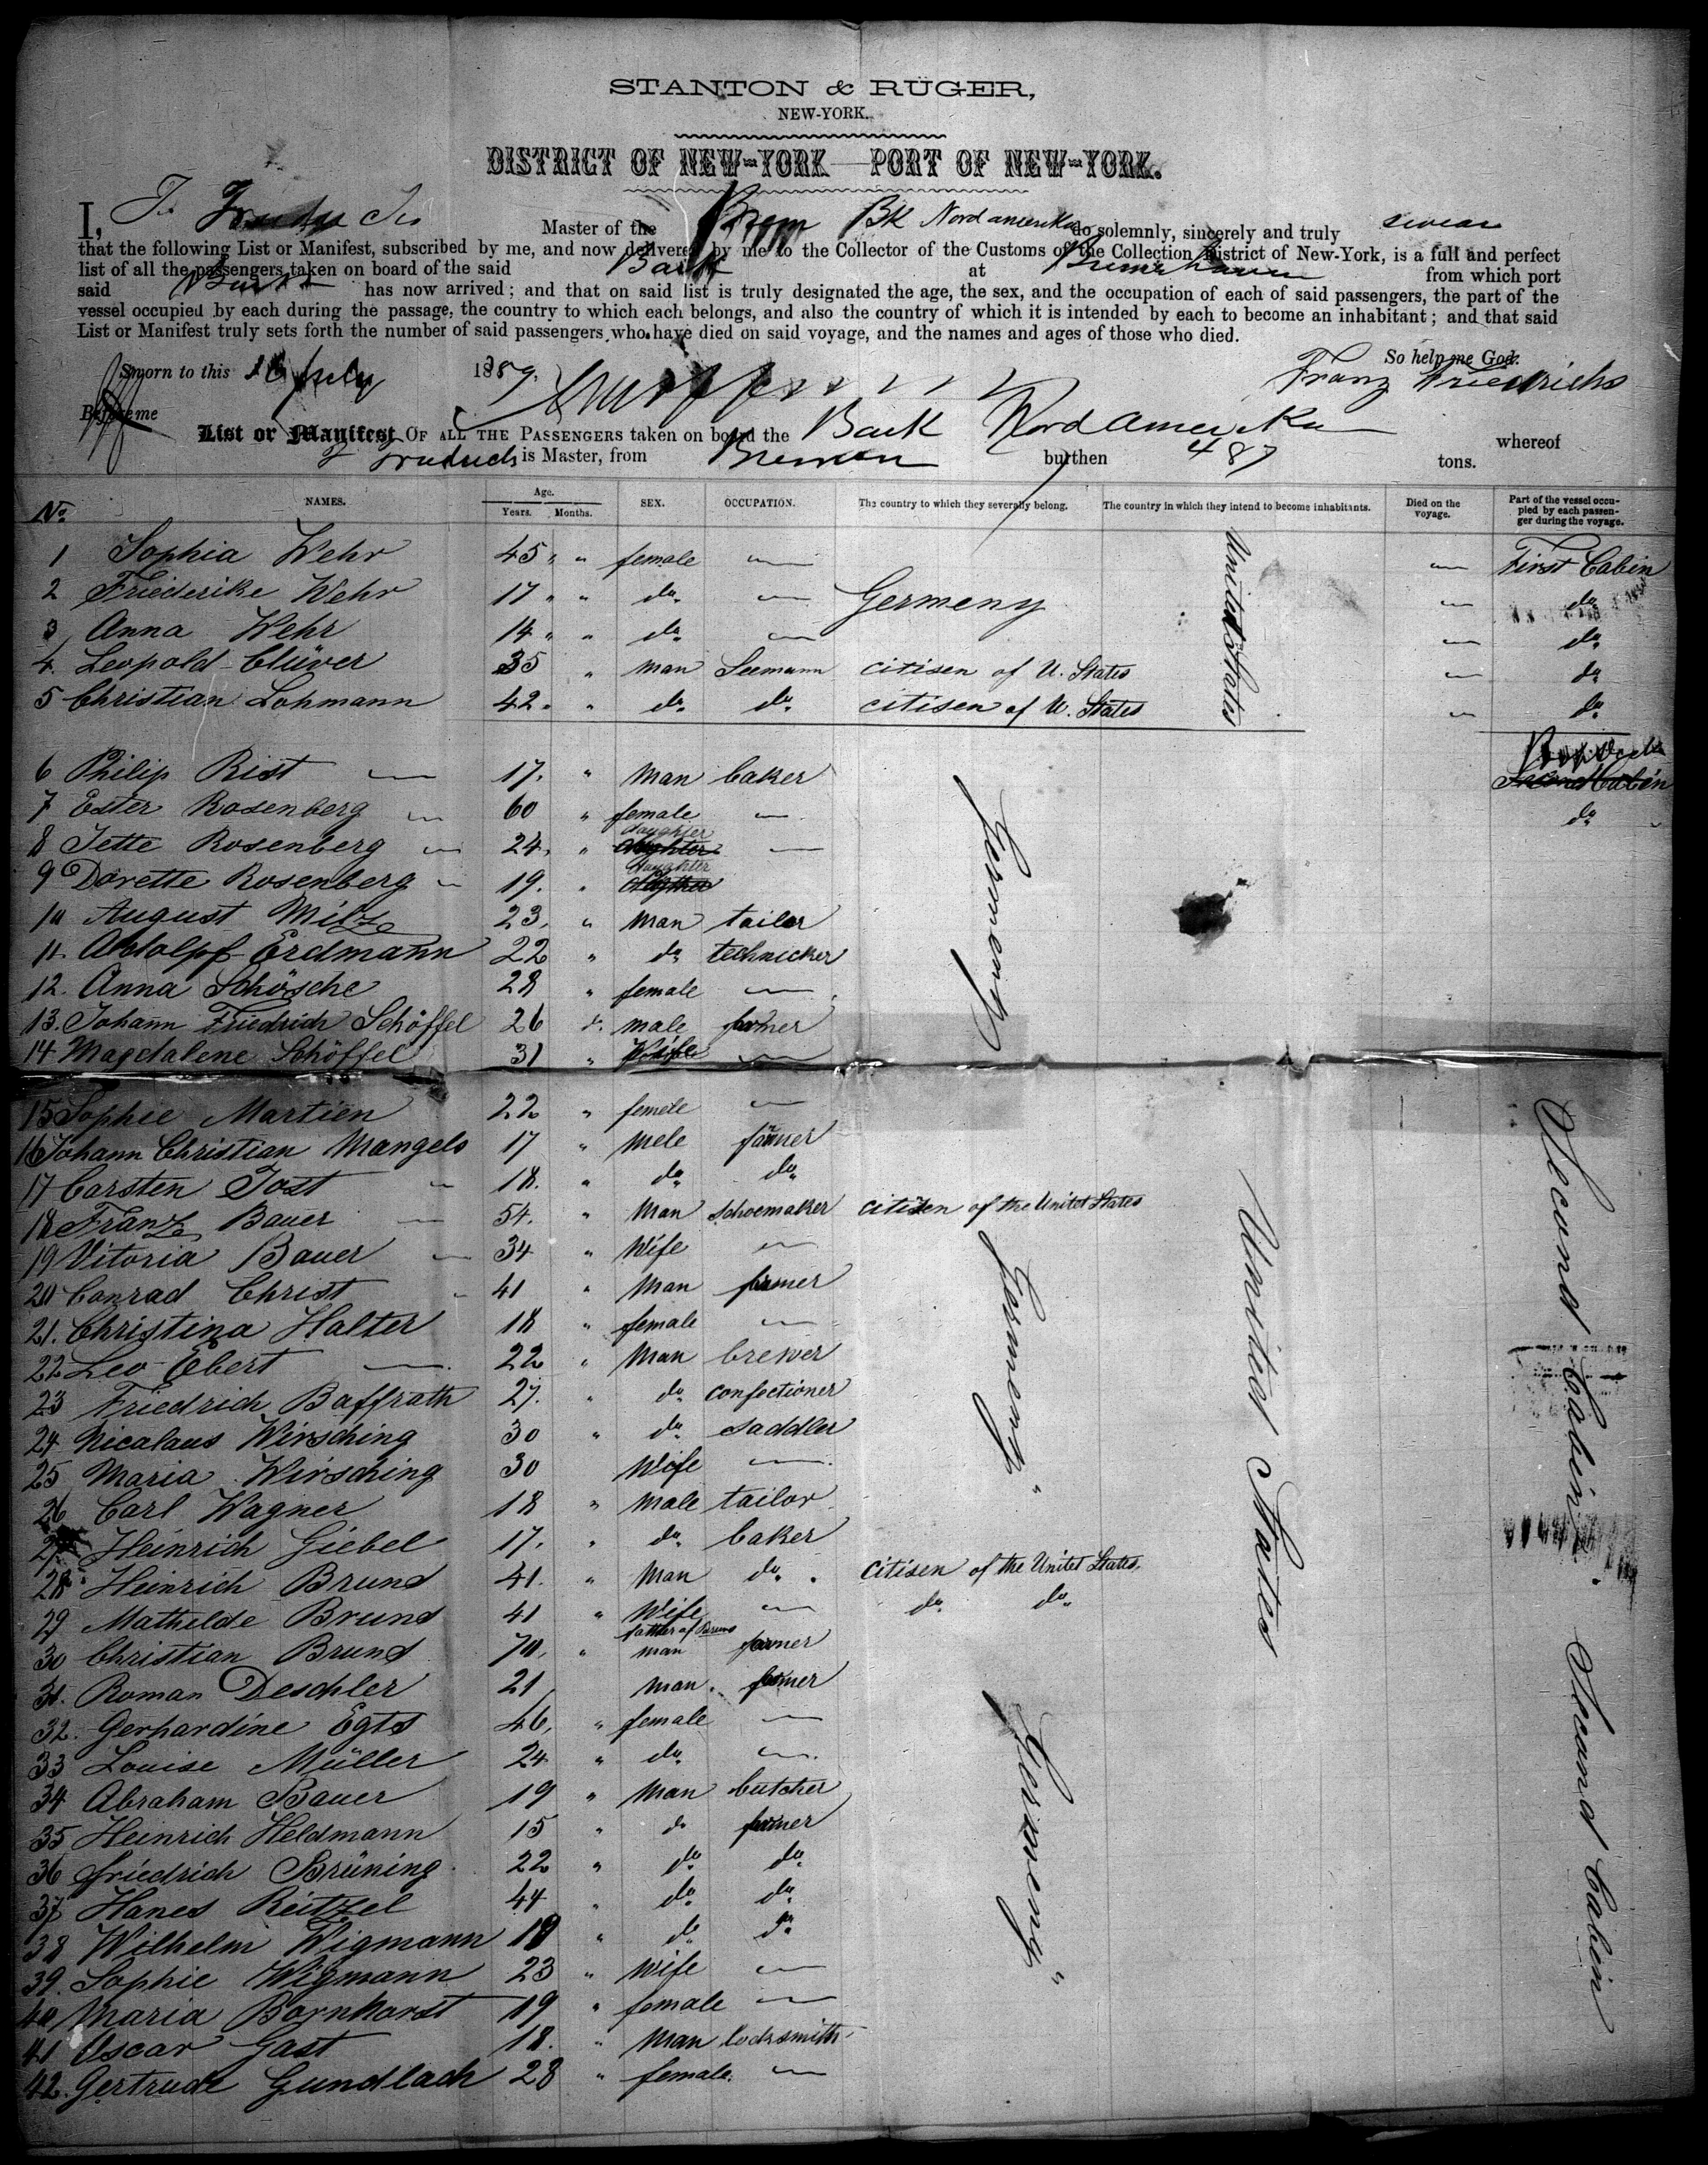 STANTON & RUGER,
NEW-YORK.
DISTRICT OF NEW-YORK—PORT OF NEW-YORK.
I, Master of the Brem Bk Nordamerika do solemnly, sincerely and truly swear
that the following List or Manifest, subscribed by me, and now delivered by me to the Collector of the Customs of the Collection District of New-York, is a full and perfect
list of all the passengers taken on board of the said Bark at Bremerhaven from which port
said Bark has now arrived; and that on said list is truly designated the age, the sex, and the occupation of each of said passengers, the part of the
vessel occupied by each during the passage, the country to which each belongs, and also the country of which it is intended by each to become an inhabitant; and that said
List or Manifest truly sets forth the number of said passengers who have died on said voyage, and the names and ages of those who died.
So help me God.
Sworn to this 16 July 1859. Franz Friedrichs
Before me
List or Manifest OF ALL THE PASSENGERS taken on board the Bark Nord amerika whereof
is Master, from Bremen burthen 487 tons.
No. NAMES. Age. Years. Months. SEX. OCCUPATION. The country to which they severally belong. The country in which they intend to become inhabitants. Died on the voyage. Part of the vessel occupied by each passenger during the voyage.
1 Sophia Wehr 45 " " female — — First Cabin
2 Friederike Wehr 17 " " do. — Germeny United States — do
3 Anna Wehr 14 " " do — — do
4. Leopold Clüver 35 " man Seemann citisen of U. States — do
5 Christian Lohmann 42 " " do. do. citisen of U. States — do
6 Philip Rist — 17. " man baker Second Cabin
7 Ester Rosenberg — 60 " female — do
8 Jette Rosenberg — 24. " daughter —
9 Dorette Rosenberg — 19. " daughter
10 August Milz 23. " man tailor
11. Adolpf Erdmann 22 " do technicker
12. Anna Schösche 28 " female — Germeny
13. Johann Friedrich Schöffel 26 " male farmer
14 Magdalene Schöffel 31 " Wife —
15 Sophie Martien 22 " femele —
16 Johann Christian Mangels 17 " mele farmer
17 Carsten Jost 18. " do do
18 Franz Bauer — 54. " Man schoemaker citizen of the Unitet States
19 Vitoria Bauer — 34 " Wife —
20 Conrad Christ 41 " Man farmer
21. Christina Halter 18 " female — Germeny "
22 Leo Ebert — 22 " Man brewer
23 Friedrich Baffrath 27. " do confectioner United States
24 Nicalaus Wirsching 30 " do. saddler Second Cabin.
25 Maria Wirsching 30 Wife —
26 Carl Wagner 18 " male tailor
27 Heinrich Giebel 17. " do. baker
28 Heinrich Bruns 41. " Man do. citisen of the Unitet States.
29 Mathelde Bruns 41 " Wife — do do
30 Christian Bruns 70. " father of Bruns man farmer
31. Roman Deschler 21 man. farmer
32. Gerhardine Egts 46, " female —
33 Louise Müller 24 " do. —
34 Abraham Bauer 19 " Man butcher
35 Heinrich Heldmann 15 " do farmer Germeny " Second Cabin
36 Friedrich Brüning 22 " do do
37 Hanes Reitzel 44 " do. do
38 Wilhelm Wigmann 19 " do do
39. Sophie Wigmann 23 " Wife —
40 Maria Bornhorst 19 " female —
41 Oscar Gast 18. " Man locksmith
42. Gertrude Gundlach 28 " female. —